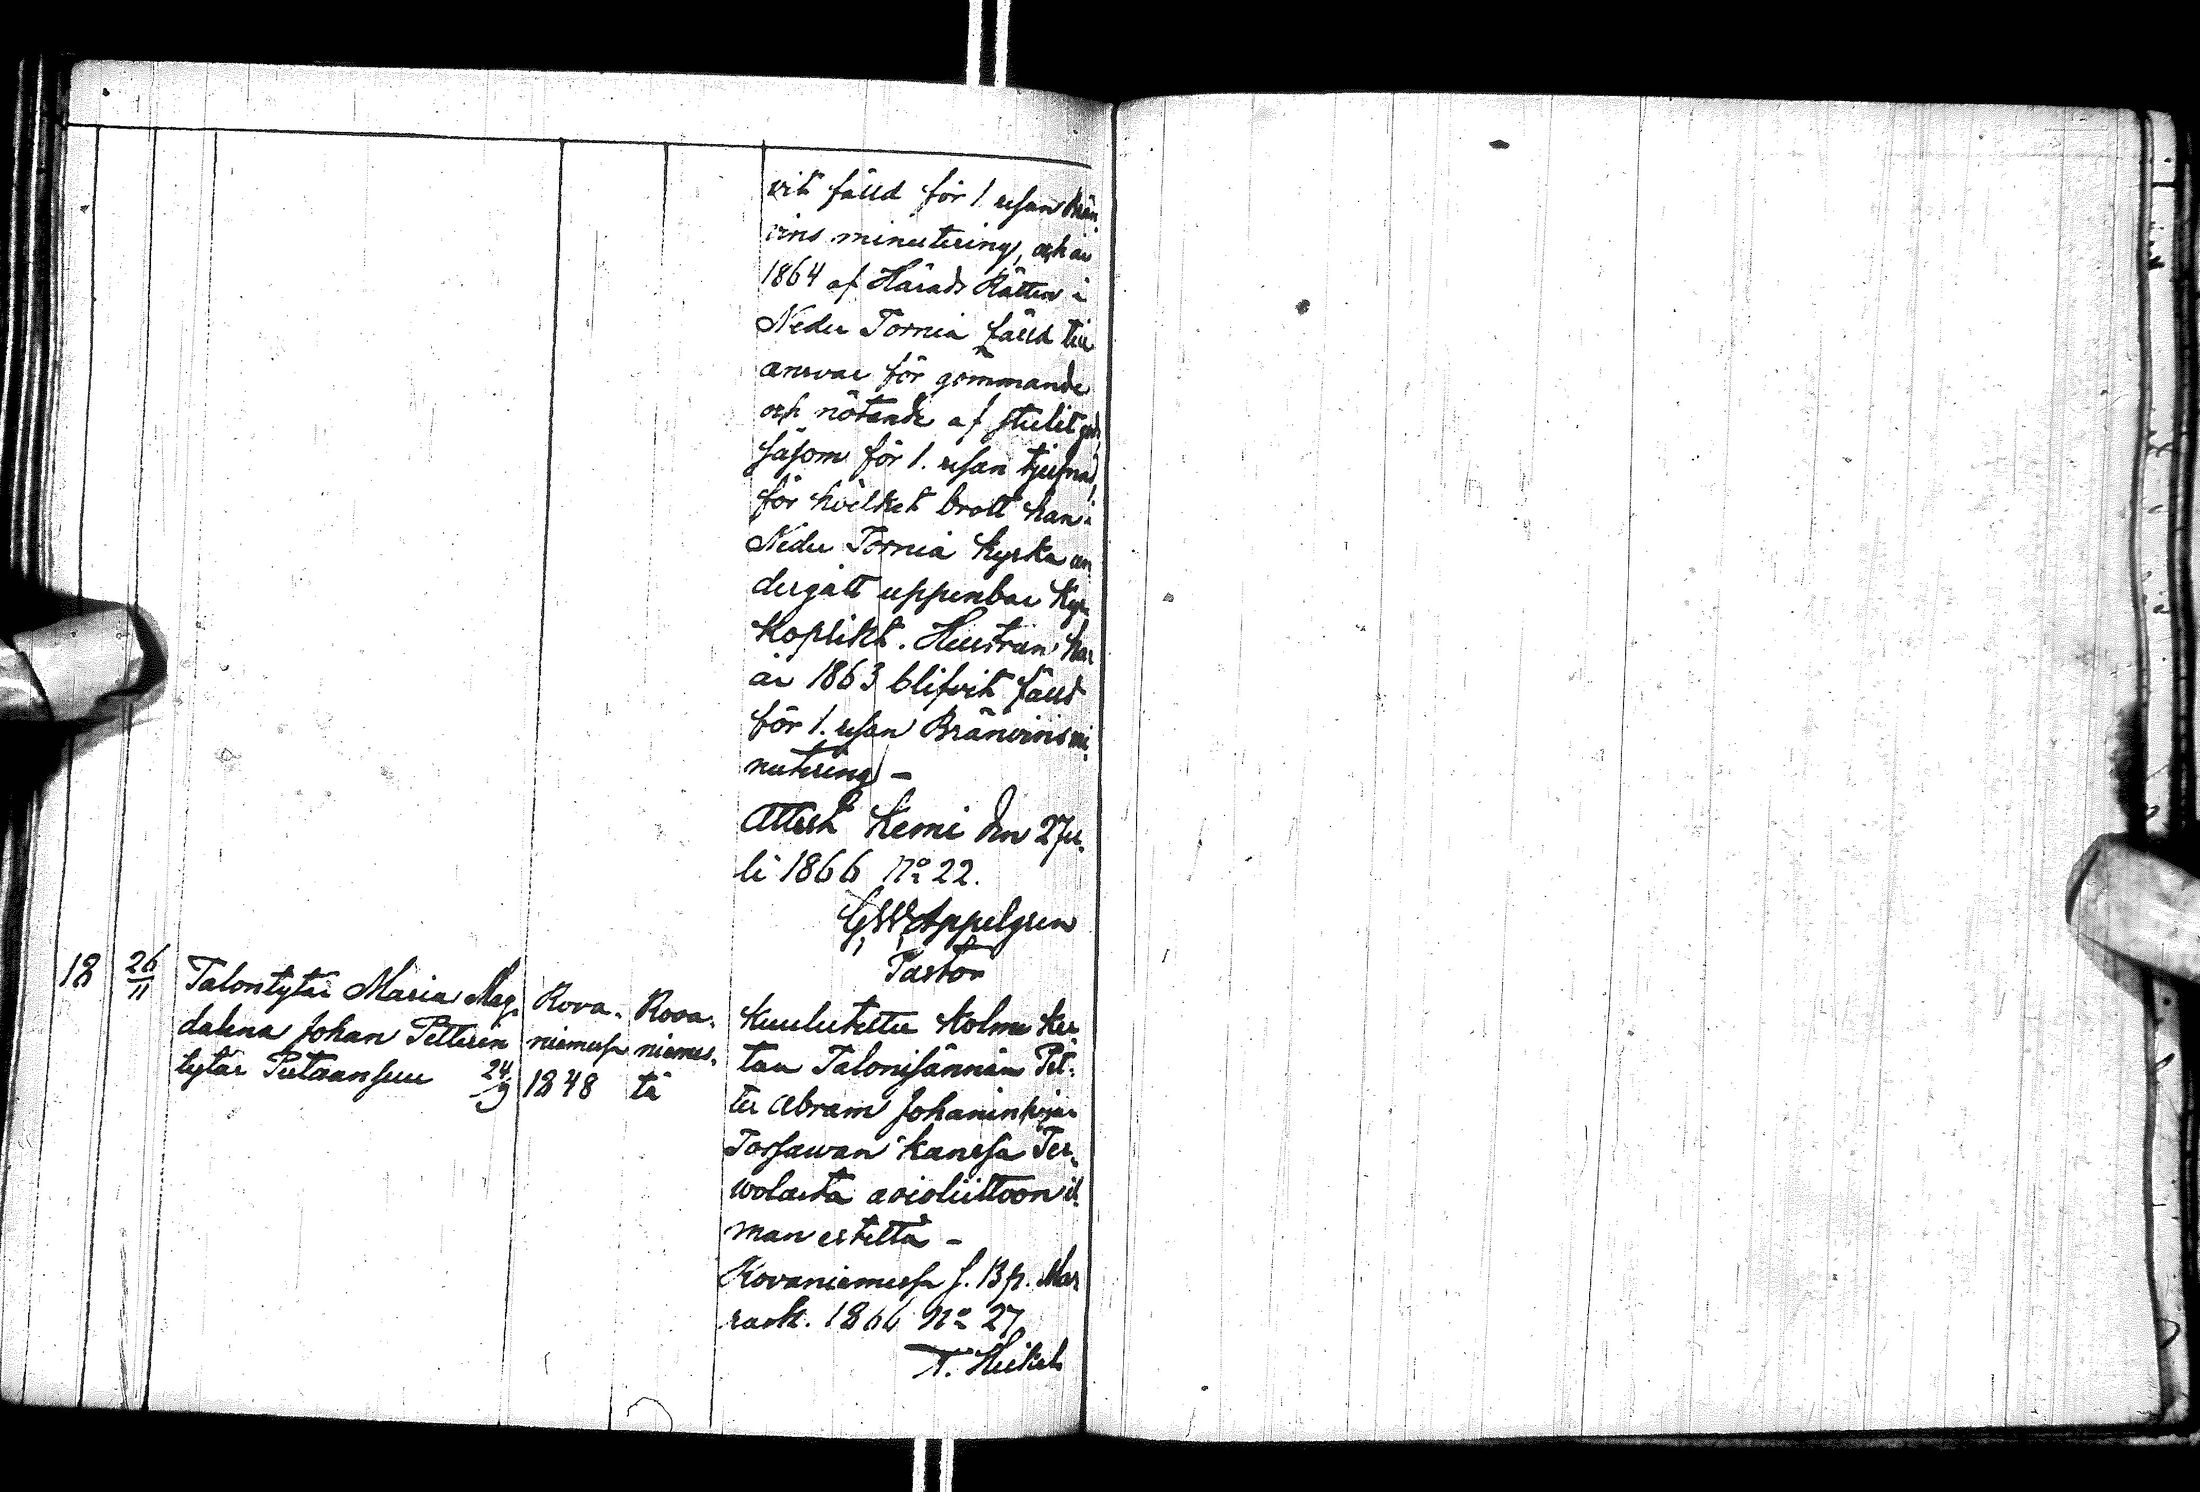 vit fälld för 1. resan Brän
vins minutering, och år
1864 af Härads Rätten i
Neder Torneå fälld till
ansvar för gömmande
och nötande af stulit gods
såsom för 1. resan tjufnad,
för hvilket brott han i
Neder Torneå Kyrka un
dergått uppenbar Kyr
koplikt. Hustrun har
år 1863 blifvit fälld
för 1. resan Bränvins mi
nutering –
Attest Kemi den 2 Ju-
li 1866 No 22.
G W Appelgren
Pastor
18 26/11 Talontytär Maria Mag-
dalena Johan Petterin
tytär Pietaansuu 24/9
Rova-
niemessa
1848
Rova-
niemes-
tä
Kuulutettu kolme ker
tau Talonisännän Pet-
ter Abram Johanin pojan
Torssawan kanssa Ter-
wolasta avioliittoon il
man estettä –
Rovaniemessa s. 13 p. Mar
rask. 1866 No 27
T. Heikel